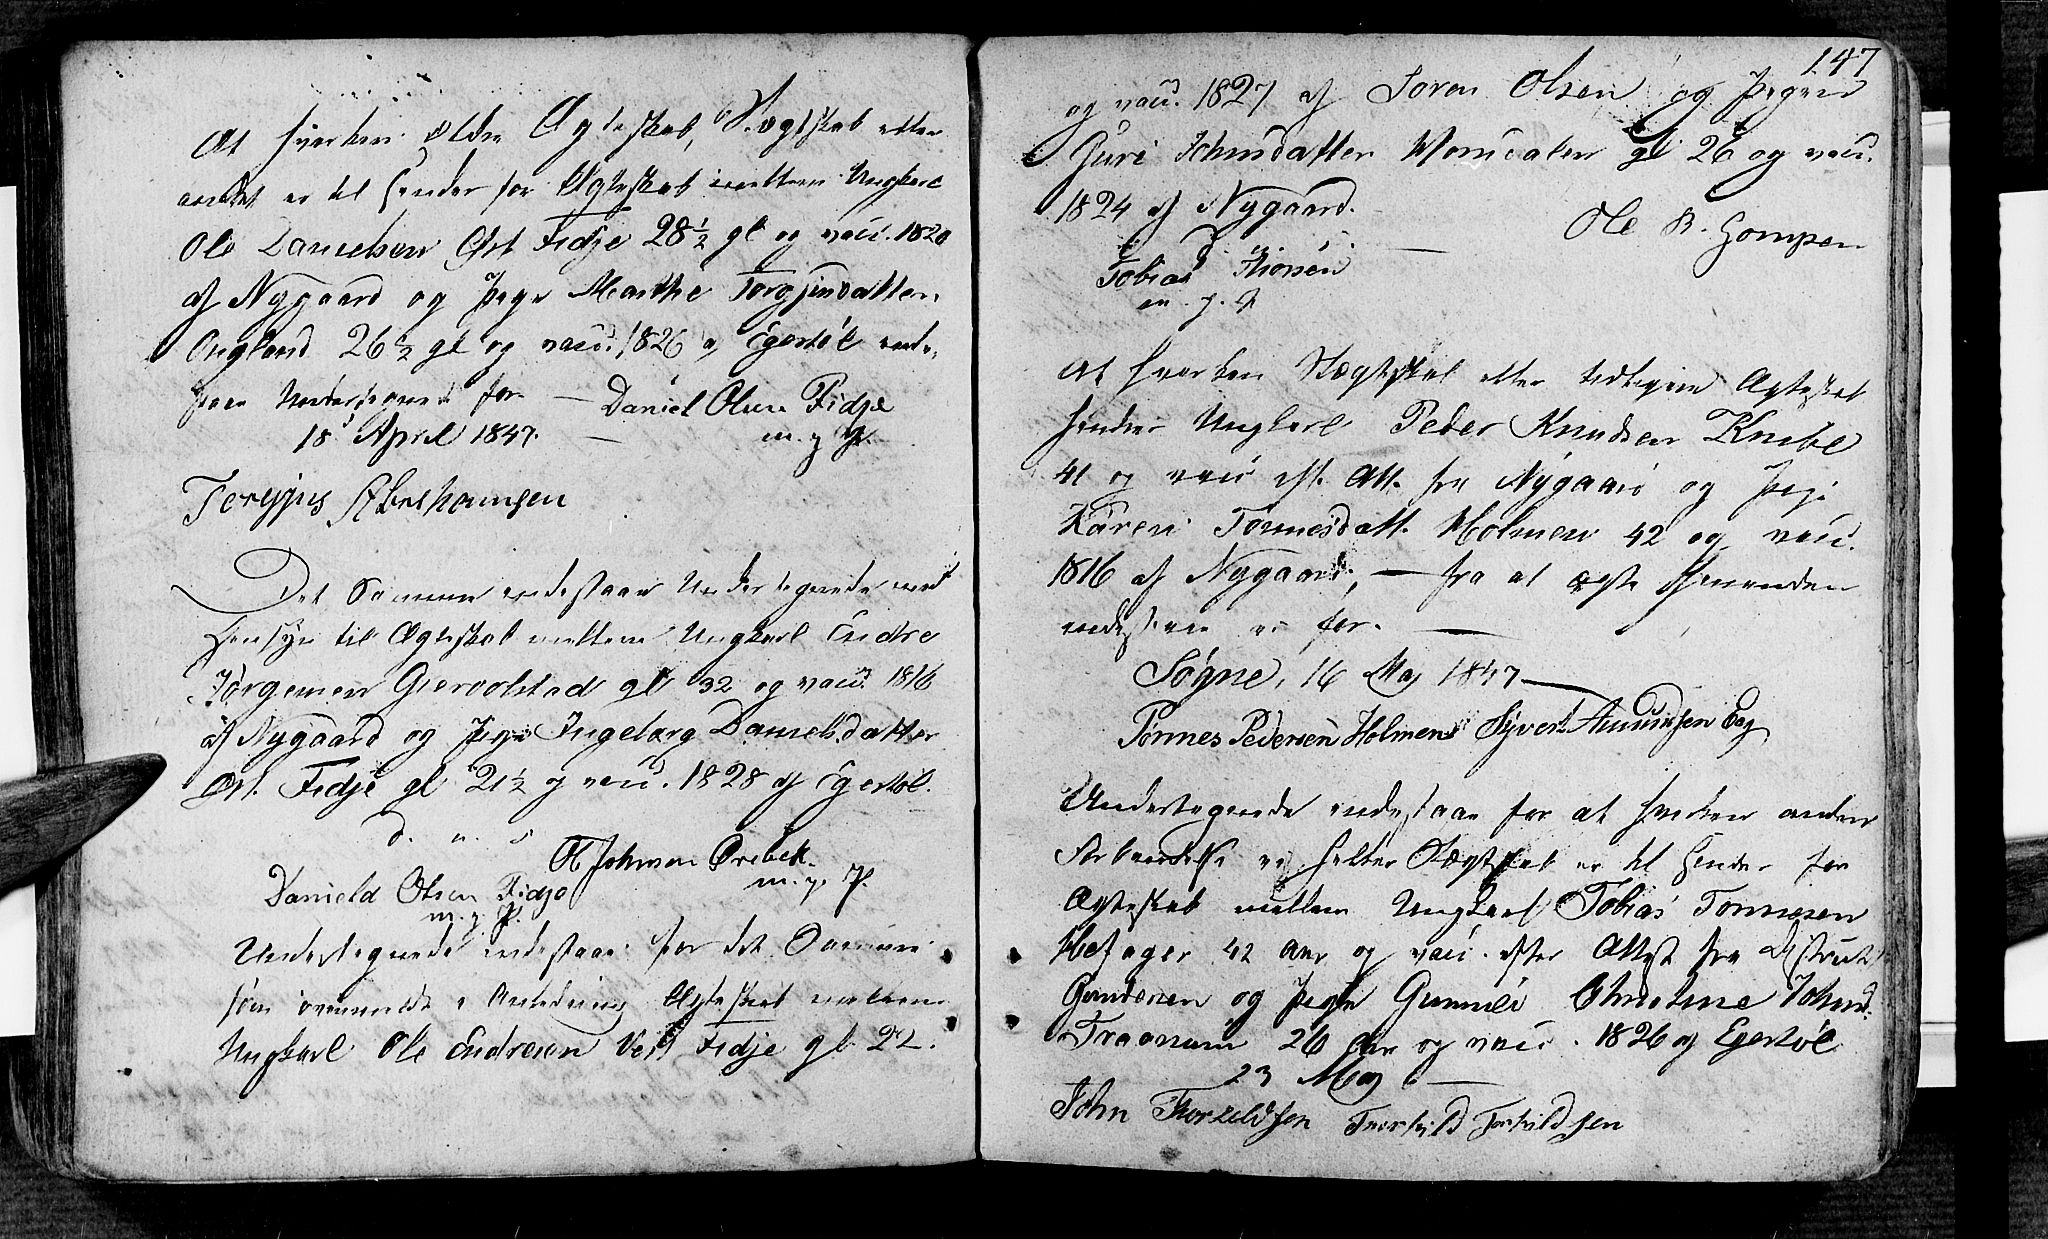 At hverken ældre Ægteskab, Slægtskab eller
andet er til hinder for Ægteskab mellem Ungkarl
Ole Danielsen Øst Fidje 28 1/2 gl og vac. 1820
af Nygaard og Pige Marthe Torgjusdatter
Augland 26 1/2 gl og vac. 1826 af Egestøl inde-
staae Undertegnede for. —
18 April 1847. —
Daniel Olsen Fidje
m. p. P.
Tergjus Abrahamsen
Det Samme indestaar Undertegnede med
Hensyn til Ægteskab mellem Ungkarl Endre
Jørgensen Gjervolstad gl 32 og vac. 1816
af Nygaard og Pige Ingeborg Danielsdatter
Øst. Fidje gl 21 1/2 og vac. 1828 af Egestøl.
d. u. s
Johnsen Ørebek.
m. p. P.
Danield Olsen Fidje
m. p. P.
Undertegnede indestaar for det Samme
som ovenmeldt i Anledning Ægteskab mellem
Ungkarl Ole Endresen Vest Fidje gl 22.
147
og vac. 1827 af Soren Olsen og Pigen
Guri Johnsdatter gl 26 og vac.
1824 af Nygaard. —
Ole R. Hompen
Tobias
m. p. P
At hverken Slægtskab eller tidligere Ægteskab
hindrer Ungkarl Peder Knudsen Knibe
41 og vac eft. Att. fra Nygaard og Pige
Karen Tønnesdatt. Holmen 42 og vac.
1816 af Nygaard, — fra at ægte hinanden
indestaae vi for. —
Søgne, 16 May 1847 —
Tønnes Pedersen Holmen Syvert Amundsen Eeg
Undertegnede indestaar for at hverken anden
Forbindelse ei heller Slægtskab er til Hinder for
Ægteskab mellem Ungkarl Tobias Tønnesen
Klefager 42 aar og vac. efter Attest fra Distrikts
Gundersen og Pige Gunnild Christine Johnsd.
Traanum 26 Aar og vac. 1826 af Egestøl
23 May —
John Thorkeldsen Thorkild Torkildsen